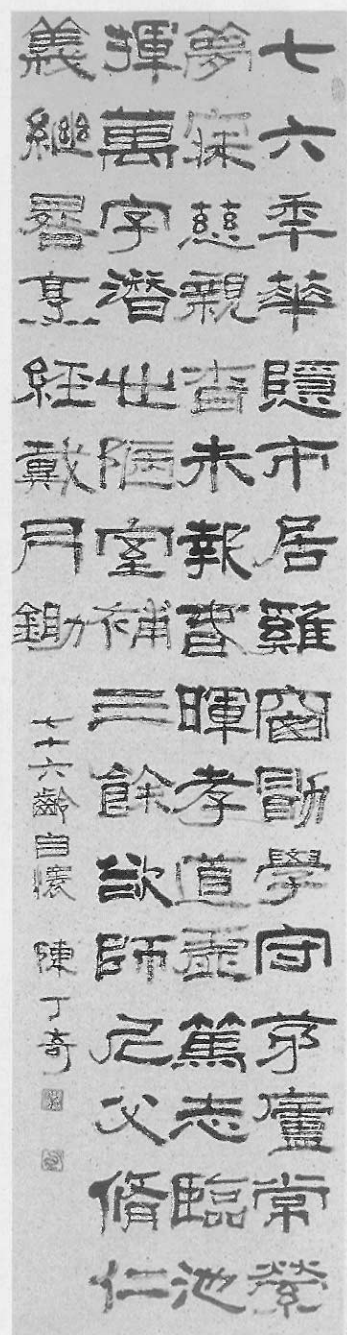 七六秊華隱市居雞窗勖學守茅廬常縈
夢寐慈親杳未報春暉孝道虛篤志臨池
揮萬字潛心陋室補三餘欲師尼父脩仁
義繼晷烹經戴月鋤
七十六齡自懷 陳丁奇